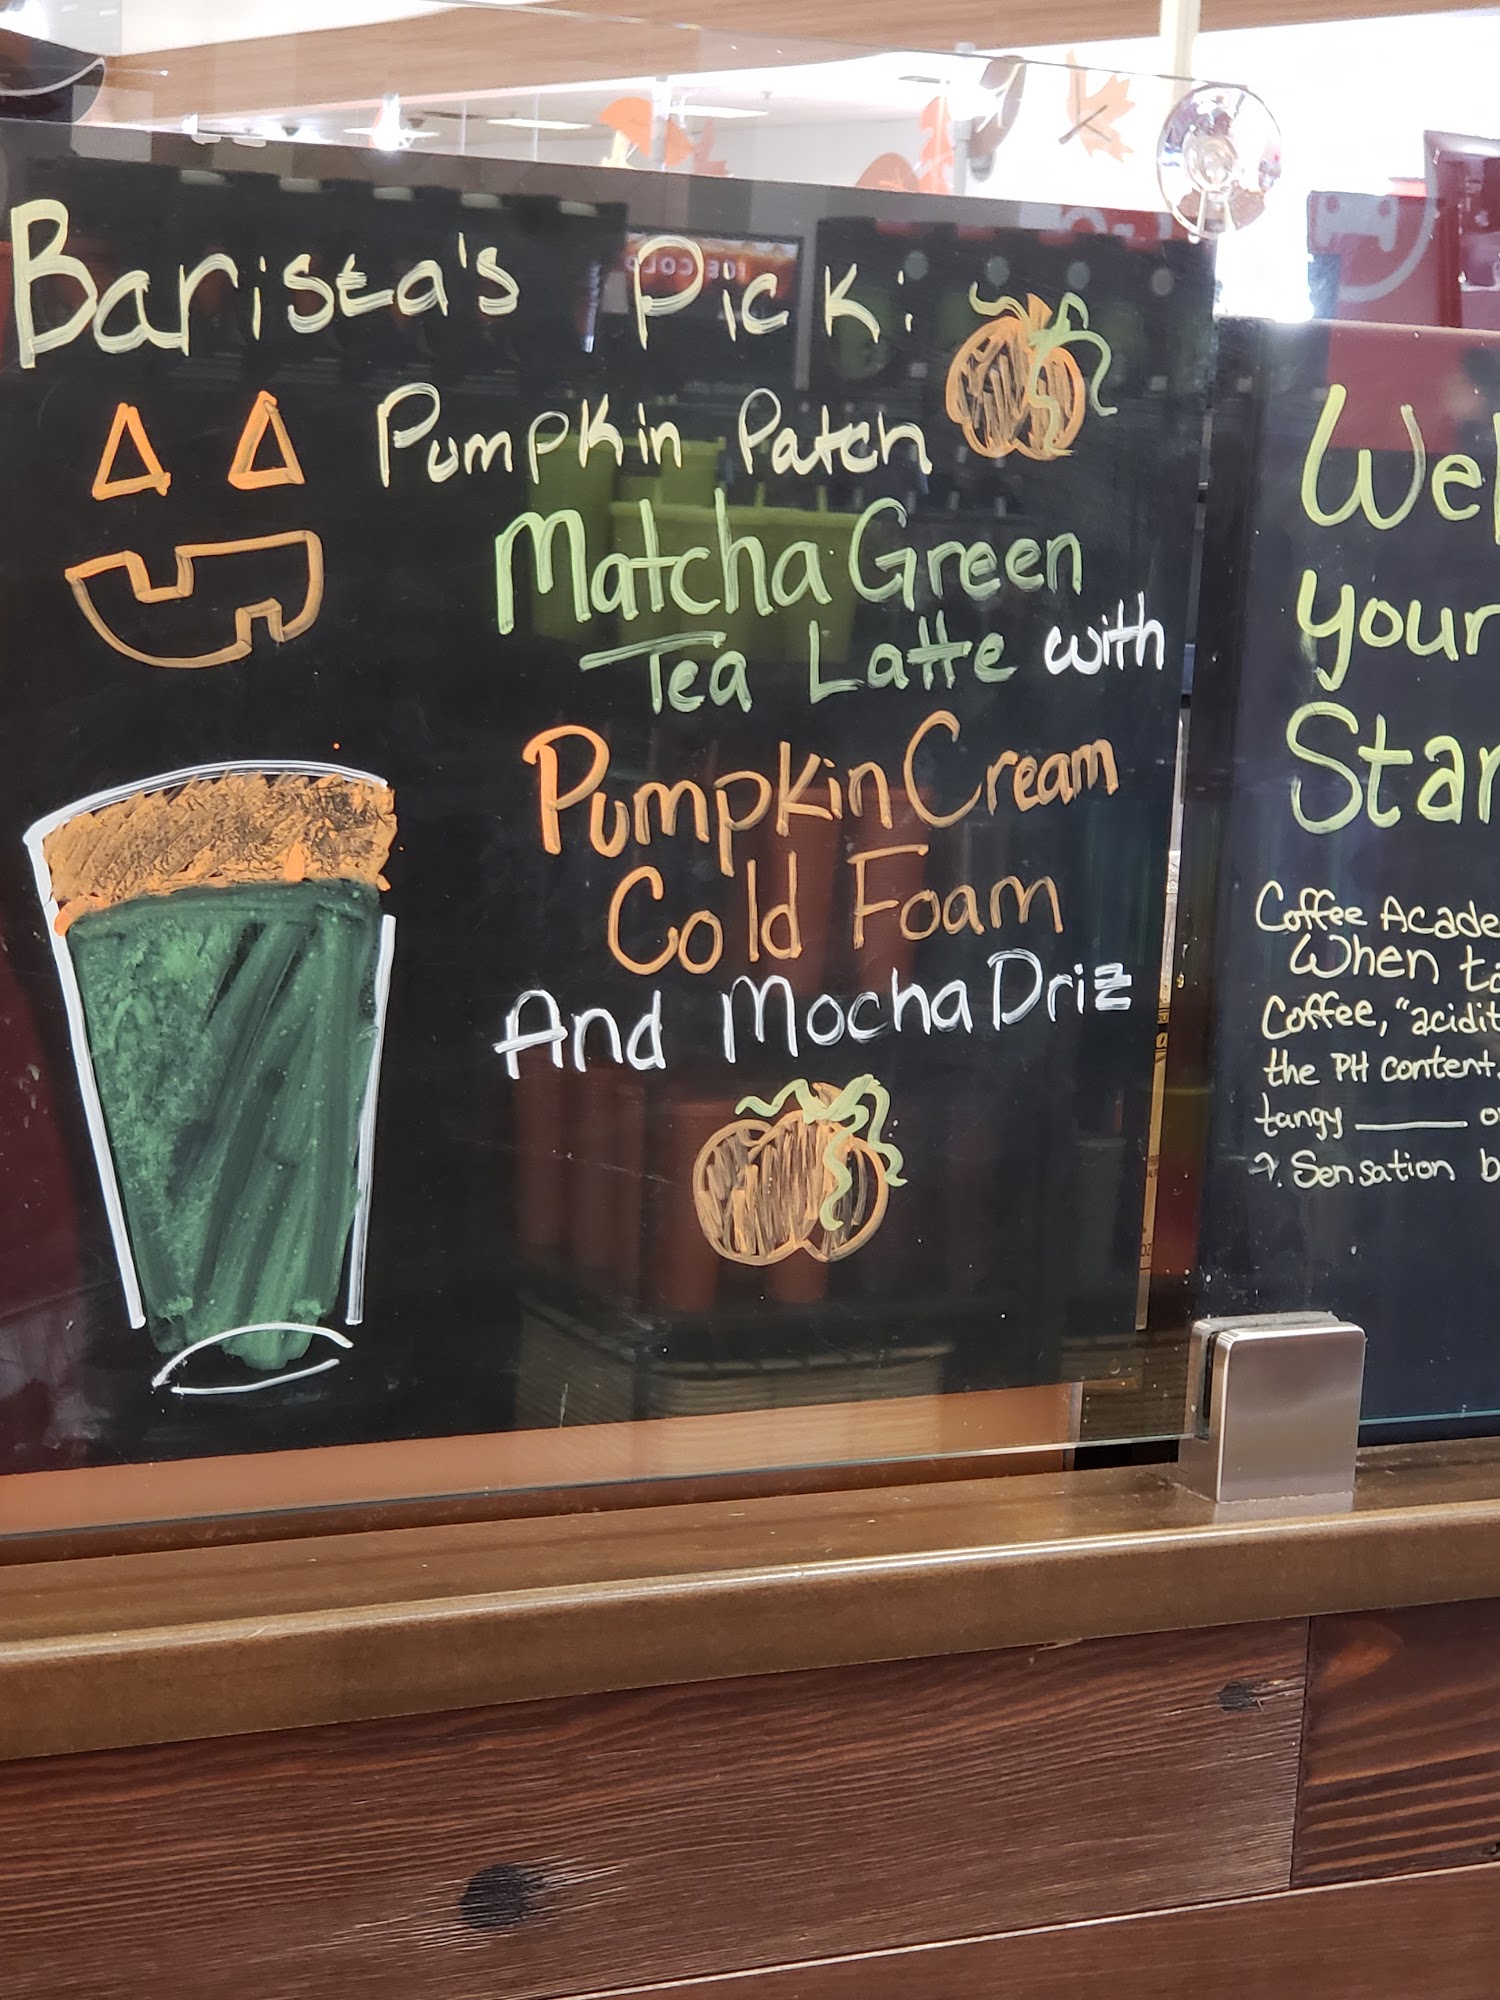 Barista's Pick:
Pumpkin Patch
Matcha Green
Tea Latte with
Pumpkin Cream
Cold Foam
And Mocha Driz
Wel
your
Star
Coffee Acade
When ta
Coffee, "acidit
the PH content.
tangy ______ o
?. Sensation b